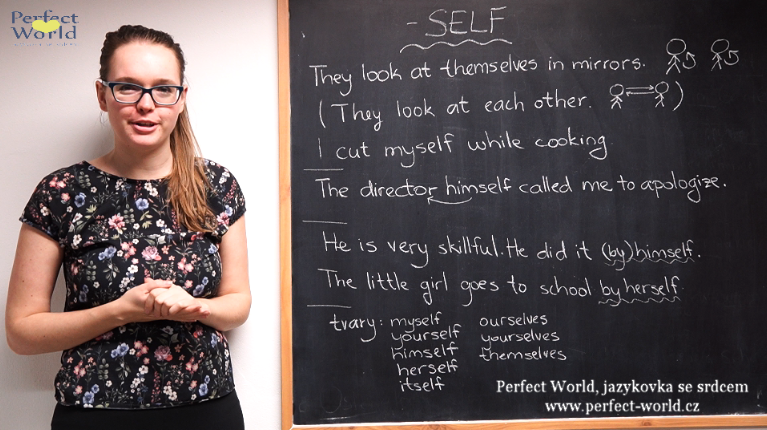 Perfect
World
- SELF
They look at themselves in mirrors.
(They look at each other. )
I cut myself while cooking
The director himself called me to apologize.
He is very skillful. He did it (by) himself.
The little girl goes to school by herself.
tvary: myself ourselves
yourself yourselves
himself themselves
herself
itself
Perfect World, jazykovka se srdcem
www.perfect-world.cz